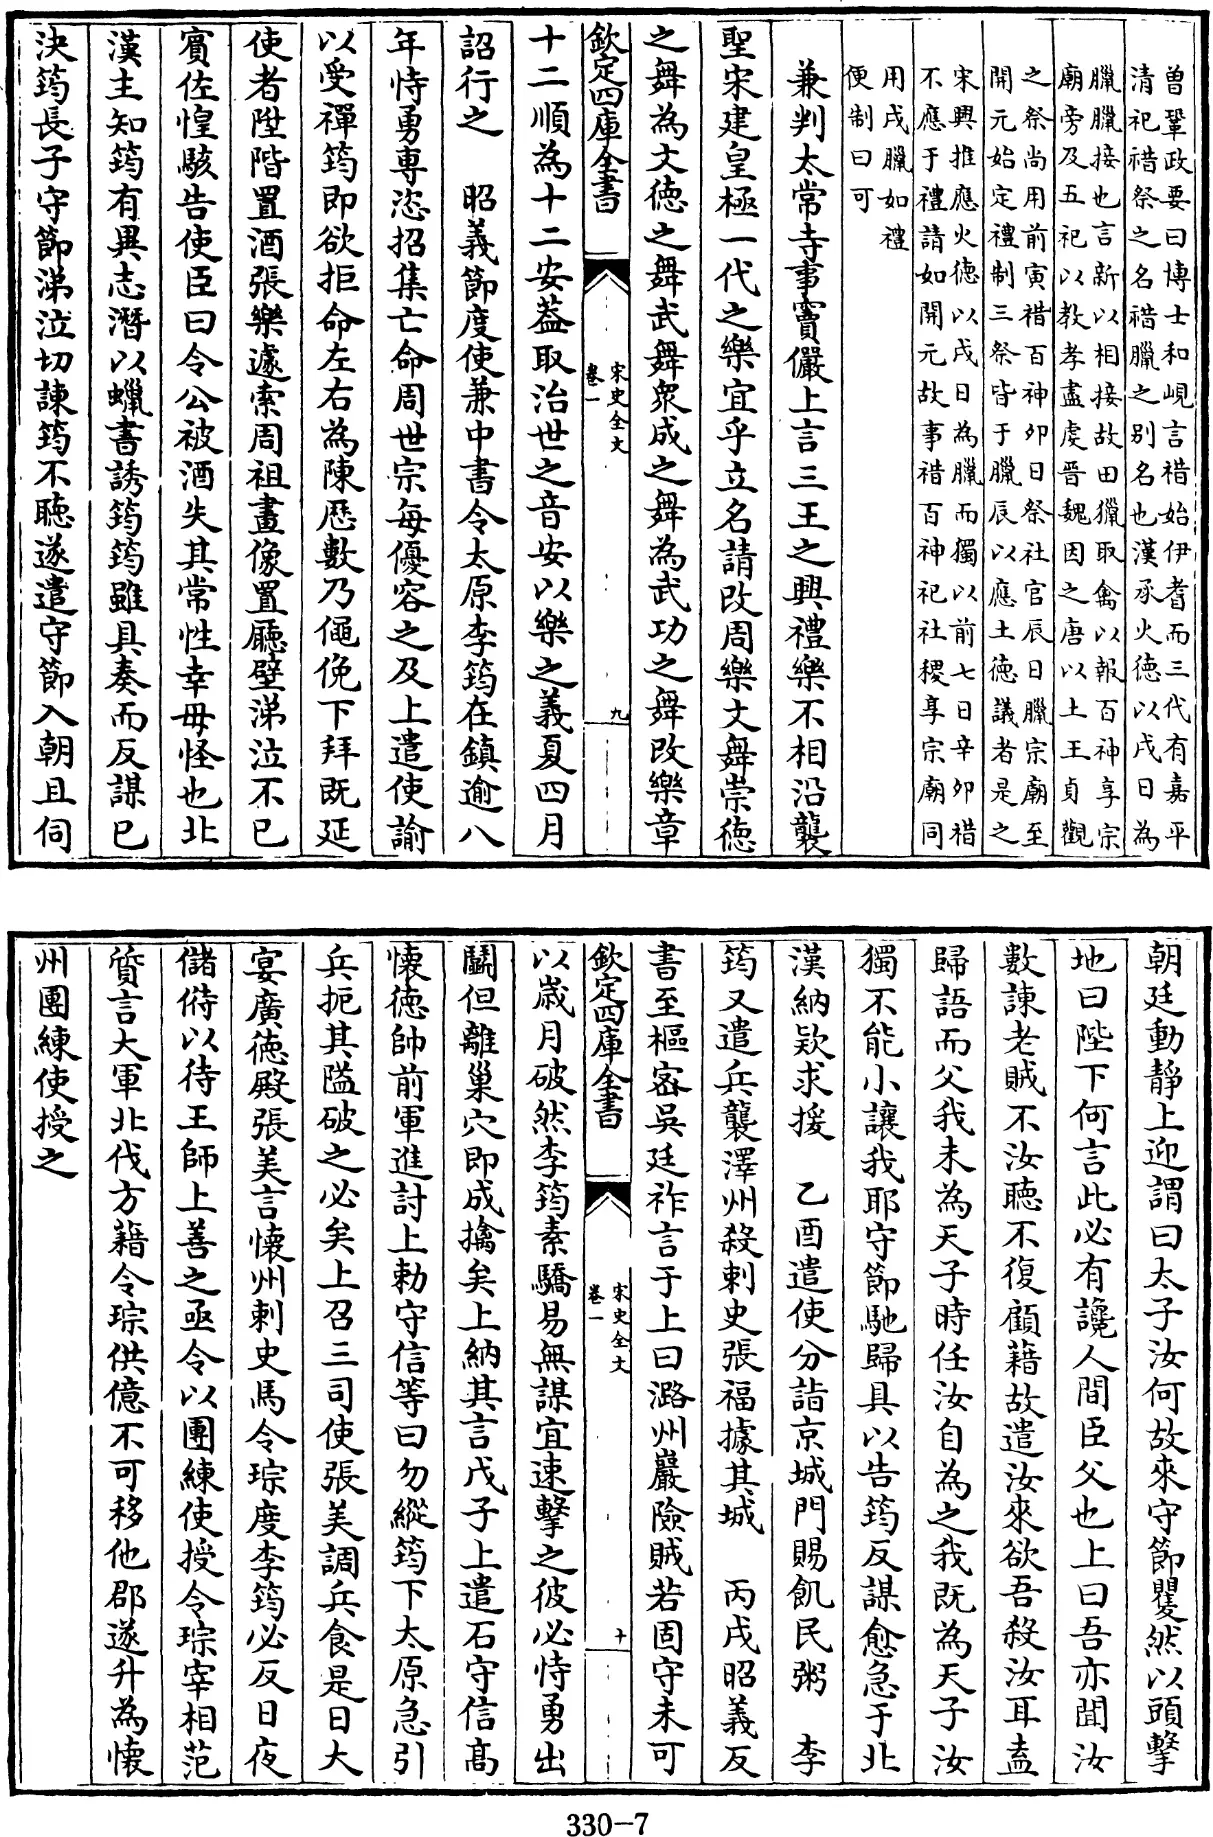 曽鞏政要曰博士和峴言禇始伊耆而三代有嘉平
清祀禇祭之名禇臘之别名也漢承火徳以戌日為
臘臘接也言新以相接故田獵取禽以報百神享宗
廟旁及五祀以教孝盡䖍晉魏因之唐以土王貞觀
之祭尚用前寅禇百神卯日祭社官辰日臘宗廟至
開元始定禮制三祭皆于臘辰以應土徳議者是之
宋興推應火徳以戌日為臘而獨以前七日辛卯禇
不應于禮請如開元故事禇百神祀社稷享宗廟同
用戌臘如禮
便制曰可
兼判太常寺事竇儼上言三王之興禮樂不相沿襲
聖宋建皇極一代之樂宜乎立名請改周樂文舞崇徳
之舞為文徳之舞武舞象成之舞為武功之舞改樂章
欽定四庫全書
宋史全文
卷一
九
十二順為十二安葢取治世之音安以樂之義夏四月
詔行之　昭義節度使兼中書令太原李筠在鎮逾八
年恃勇専恣招集亡命周世宗每優容之及上遣使諭
以受禪筠即欲拒命左右為陳歴數乃僶俛下拜既延
使者陞階置酒張樂遽索周祖畫像置㕔壁涕泣不已
賔佐惶駭告使臣曰令公被酒失其常性幸毋怪也北
漢主知筠有異志潛以蠟書誘筠筠雖具奏而反謀已
決筠長子守節涕泣切諫筠不聴遂遣守節入朝且伺
朝廷動靜上迎謂曰太子汝何故來守節矍然以頭擊
地曰陛下何言此必有讒人間臣父也上曰吾亦聞汝
數諫老賊不汝聴不復顧藉故遣汝來欲吾殺汝耳盍
歸語而父我未為天子時任汝自為之我既為天子汝
獨不能小讓我耶守節馳歸具以告筠反謀愈急于北
漢納欵求援　乙酉遣使分詣京城門賜飢民粥　李
筠又遣兵襲澤州殺刺史張福據其城　丙戌昭義反
書至樞宻吳廷祚言于上曰潞州巖險賊若固守未可
欽定四庫全書
宋史全文
卷一
十
以歲月破然李筠素驕易無謀宜速擊之彼必恃勇出
鬭但離巢穴即成擒矣上納其言戊子上遣石守信髙
懐徳帥前軍進討上勅守信等曰勿縱筠下太原急引
兵扼其隘破之必矣上召三司使張美調兵食是日大
宴廣徳殿張美言懐州刺史馬令琮度李筠必反日夜
儲偫以待王師上善之亟令以團練使授令琮宰相范
質言大軍北伐方藉令琮供億不可移他郡遂升為懐
州團練使授之
330-7